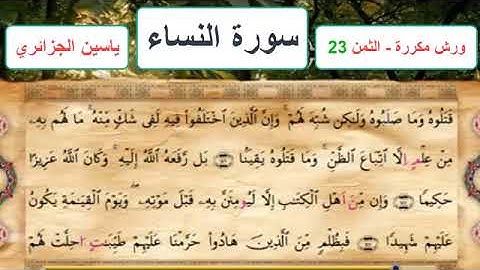 ورش مكررة - الثمن 23
سورة النساء
ياسين الجزائري
قَتَلُوهُ وَمَا صَلَبُوهُ وَلَٰكِن شُبِّهَ لَهُمْ وَإِنَّ ٱلَّذِينَ ٱخْتَلَفُوا۟ فِيهِ لَفِى شَكٍّۢ مِّنْهُ مَا لَهُم بِهِۦ
مِنْ عِلْمٍ إِلَّا ٱتِّبَاعَ ٱلظَّنِّ وَمَا قَتَلُوهُ يَقِينًۢا بَل رَّفَعَهُ ٱللَّهُ إِلَيْهِ وَكَانَ ٱللَّهُ عَزِيزًا
حَكِيمًا وَإِن مِّنَ اَهْلِ ٱلْكِتَٰبِ إِلَّا لَيُومِنَنَّ بِهِۦ قَبْلَ مَوْتِهِۦ وَيَوْمَ ٱلْقِيَٰمَةِ يَكُونُ
عَلَيْهِمْ شَهِيدًا فَبِظُلْمٍ مِّنَ ٱلَّذِينَ هَادُوا۟ حَرَّمْنَا عَلَيْهِمْ طَيِّبَٰتٍ ا۟حِلَّتْ لَهُمْ